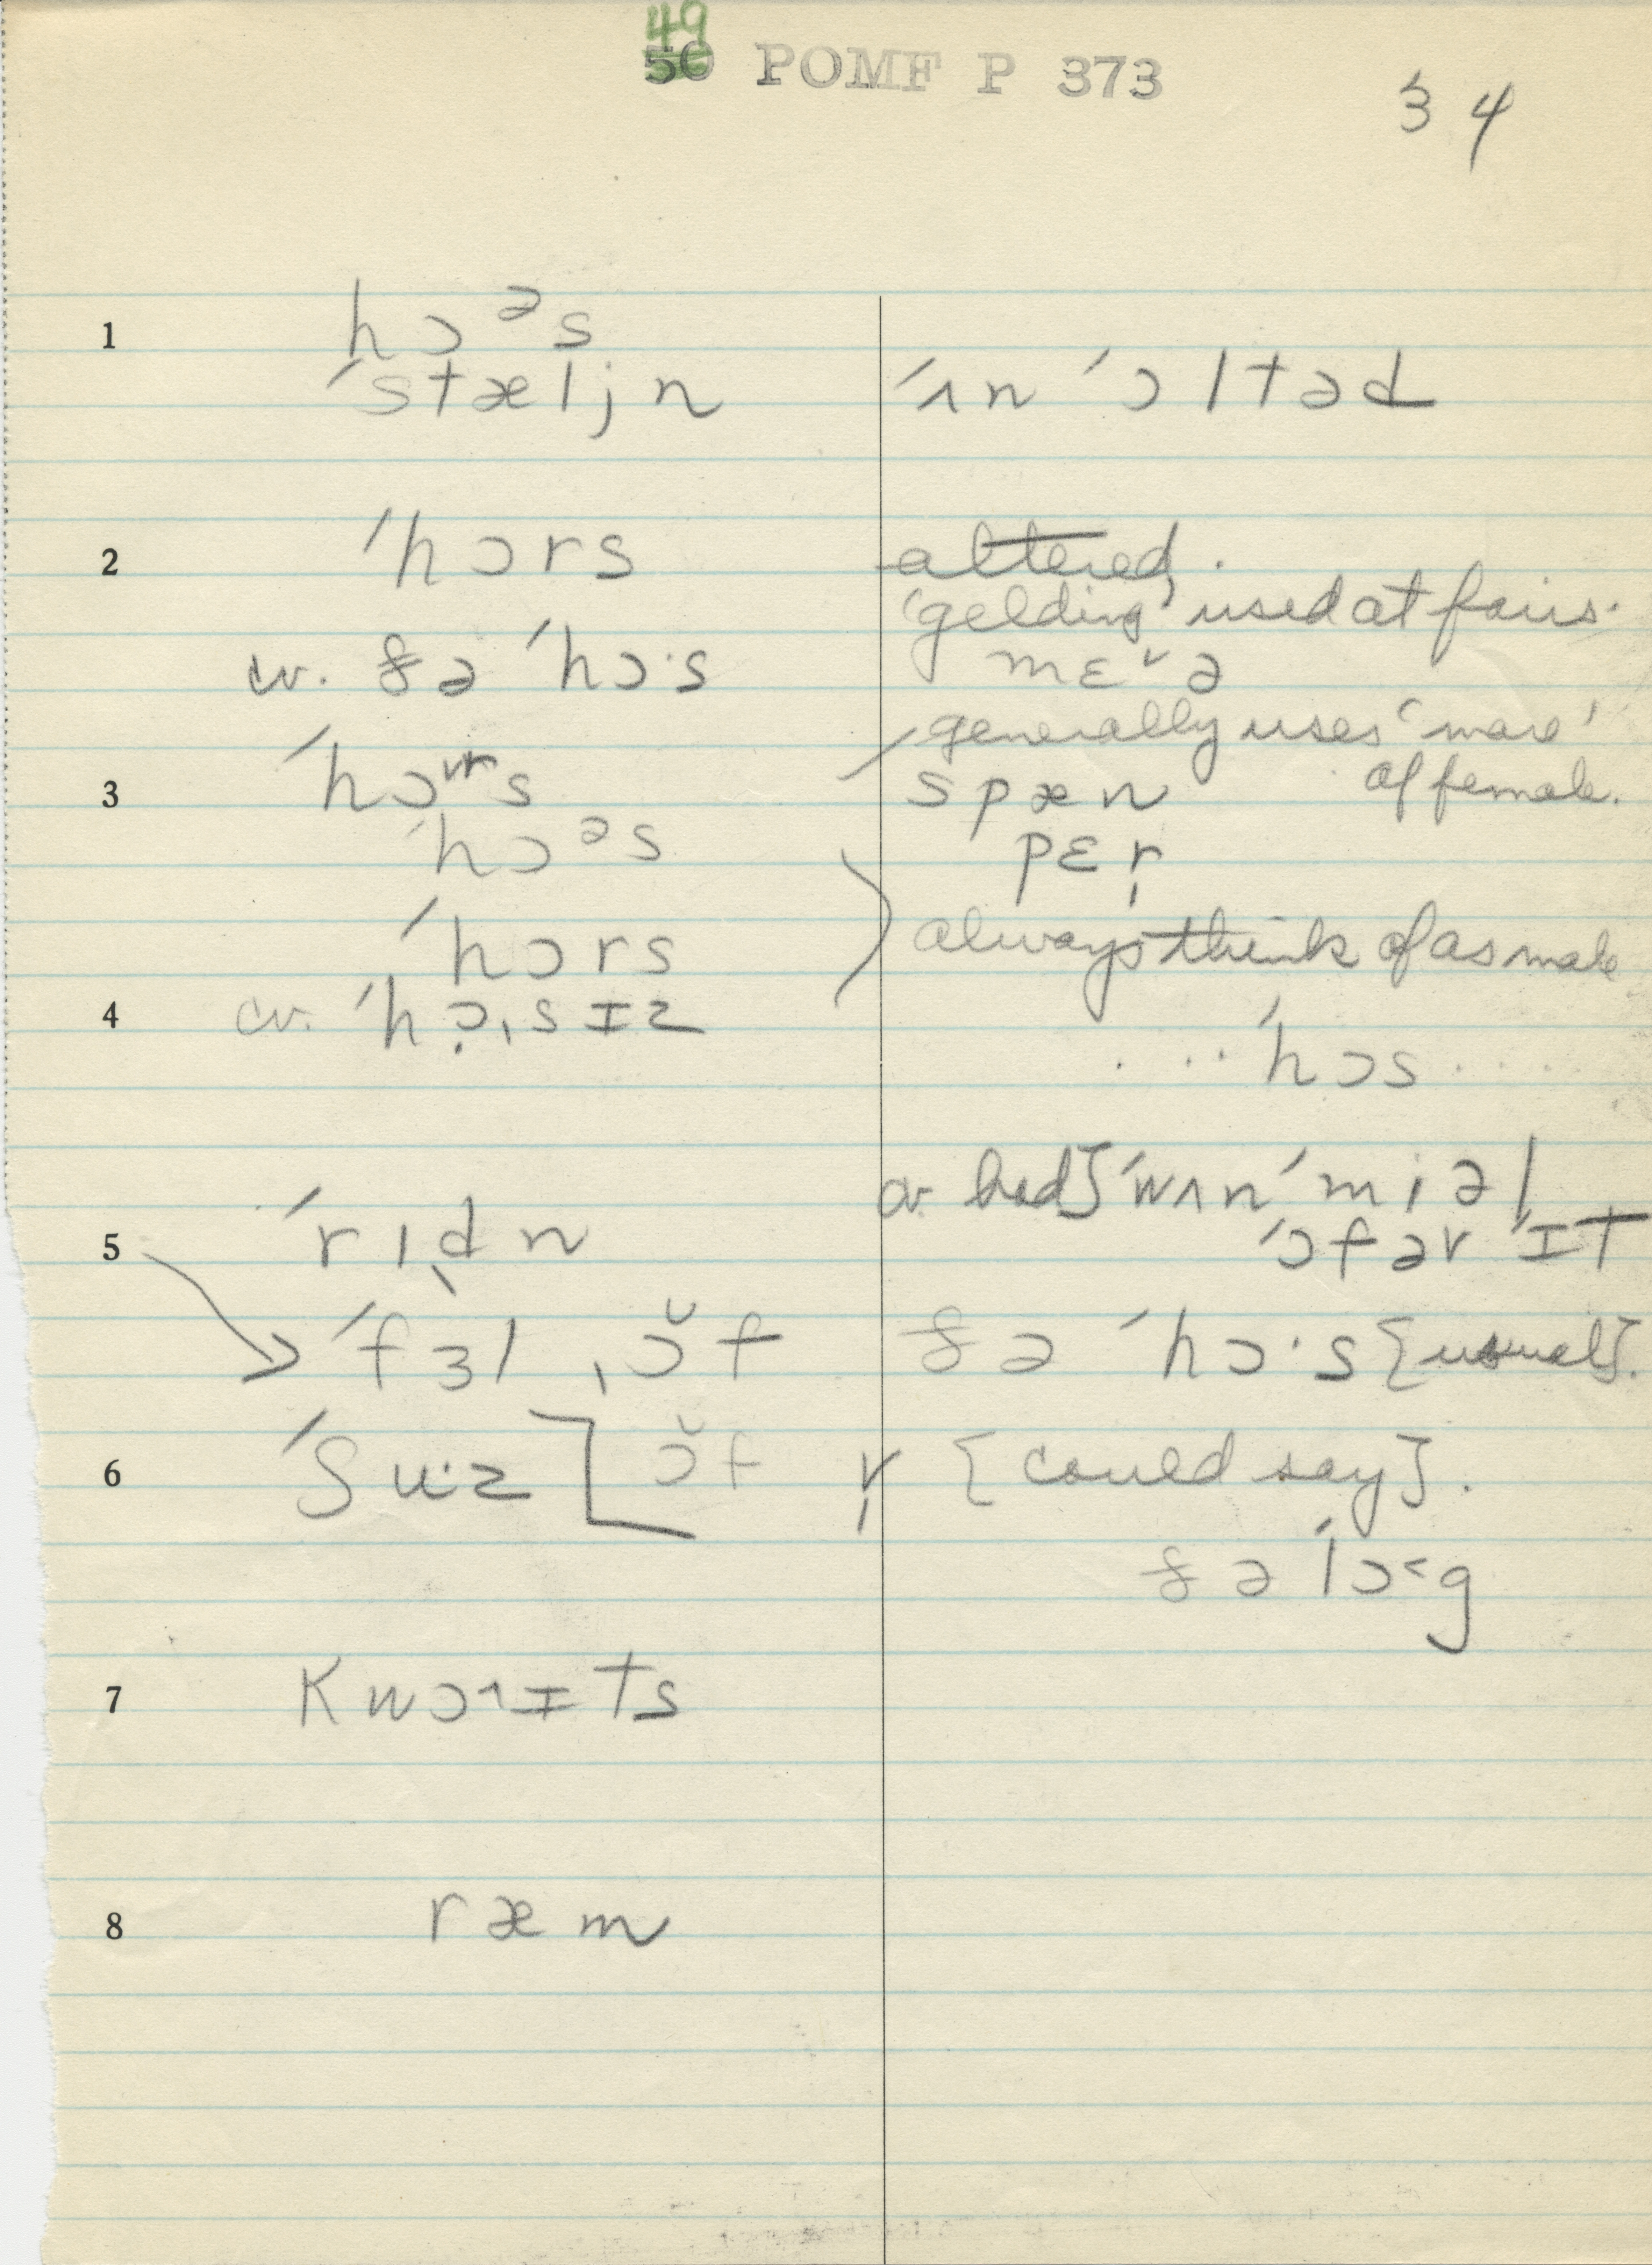 49
50 POMF P 373
34
1 hɔᵊs
ˈstæljn ˈʌn ˈɔltəd
2 ˈhɔrs altered.
'gelding' used at fairs.
cv. ðə ˈhɔ·s mɛˇə
generally uses 'mare'
of female.
3 ˈhɔʳs spæn
ˈhɔᵊs pɛr̩
ˈhɔrs always think of as male
4 cv. ˈhɔ̣ˌsɪz
... ˈhɔs ....
cv. had] ˈwʌn ˈmiəl
5 ˈrɪd̩n ˈɔfər ˈɪt
ˈfɜl ˌɔ̆f ðə ˈhɔ·s [usual].
6 ˈʃu·z [ɔ̆f r̩ [could say].
ðə ˈlɔ˂g
7 kwɔ˄ɪts
8 ræm